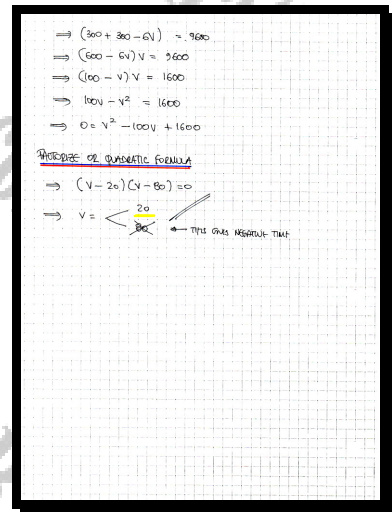 ⇒ (300 + 300 - 6V) = 9600
⇒ (600 - 6V) V = 9600
⇒ (100 - V) V = 1600
⇒ 100V - V² = 1600
⇒ 0 = V² - 100V + 1600
FACTORIZE OR QUADRATIC FORMULA
⇒ (V - 20)(V - 80) = 0
⇒ V = < 20
80 ← THIS GIVES NEGATIVE TIME